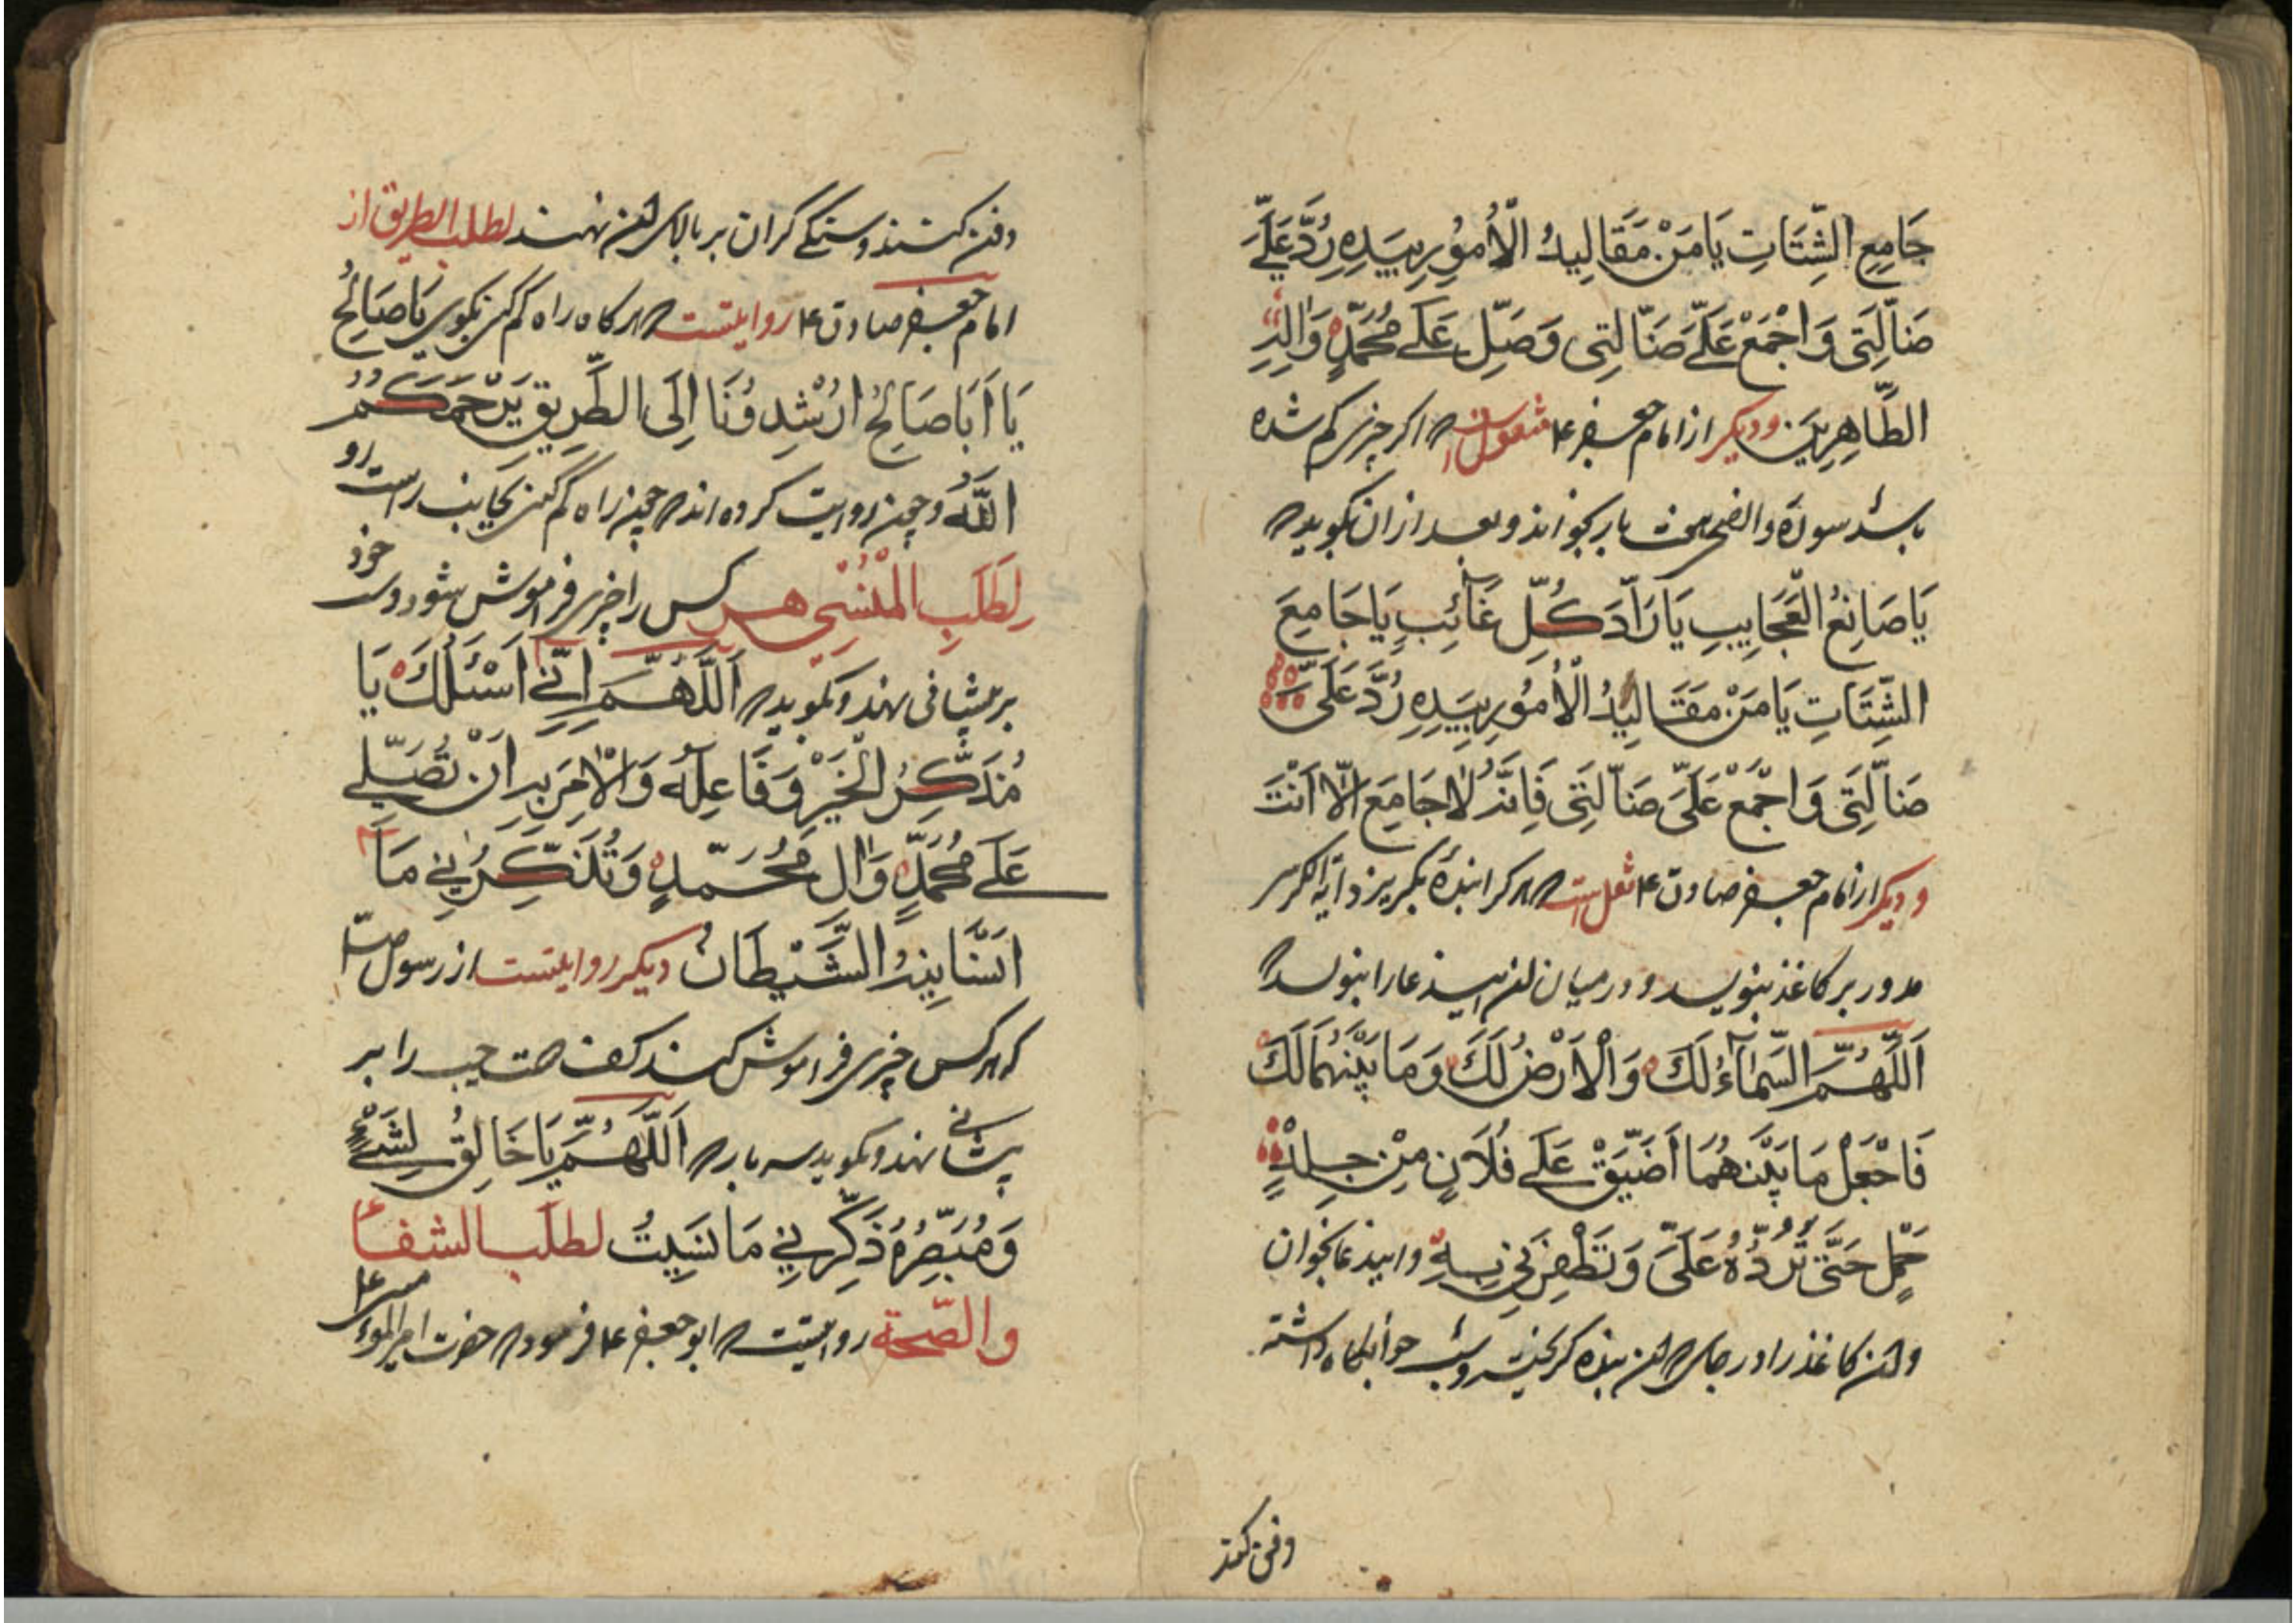 جَامِعِ الشِّتَاتِ يَا مَنْ مَقَالِيدُ الْأُمُورِ بِيَدِهِ رُدَّ عَلَيَّ
ضَالَّتِي وَاجْمَعْ عَلَيَّ ضَالَّتِي وَصَلِّ عَلَى مُحَمَّدٍ وَآلِهِ
الطَّاهِرِينَ ودیکر از امام جعفر ع منقول است که اکر چیزی کم شده
باشد سورة والضحی هفت بار بخواند و بعد از ان بکوید که
يَا صَانِعُ الْعَجَايِبِ يَا رَادَّ كُلِّ غَائِبٍ يَا جَامِعَ
الشِّتَاتِ يَا مَنْ مَقَالِيدُ الْأُمُورِ بِيَدِهِ رُدَّ عَلَىَّ
ضَالَّتِي وَاجْمَعْ عَلَيَّ ضَالَّتِي فَإِنَّهُ لَا جَامِعَ إِلَّا أَنْتَ
و دیکر از امام جعفر صادق ع نقل است که هر کرا بندۀ بکریزد آیة الکرسی
مدور بر کاغذ بنویسد و در میان این دعا را بنویسد
اَللّٰهُمَّ السَّمَاءُ لَكَ وَالْاَرْضُ لَكَ وَمَا بَيْنَهُمَا لَكَ
فَاجْعَلْ مَا بَيْنَهُمَا اَضْيَقَ عَلَى فُلَانٍ مِنْ جِلْدِ
جَمَلٍ حَتَّى تَرُدَّهُ عَلَىَّ وَتَظْفِرَنِي بِهِ و این دعا بخوان
و این کاغذ را در جای که این بنده کریخته وشب خوابکاه داشته
دفن کنند
دفن کنند و سنکی کران بر بالای این نهند لطلب الطریق از
امام جعفر صادق ع روایتست که هرکاه راه کم کنی بکوی يَا صَالِحُ
يَا اَبَا صَالِحُ اَرْشِدُونَا اِلَى الطَّرِيقِ يَرْحَمَكُمُ
اللّٰهُ وچنین روایت کرده اند که چون راه کم کنی بجانب راست رو
لِطَلَبِ الْمَنْسِيِّ هر کس را چیزی فراموش شود دست خود
بر پیشانی نهد و بکوید که اَللّٰهُمَّ اِنِّي اَسْئَلُكَ يَا
مُذَكِّرَ الْخَيْرِ وَفَاعِلَهُ وَالْآمِرَ بِهِ اَنْ تُصَلِّيَ
عَلَى مُحَمَّدٍ وَآلِ مُحَمَّدٍ وَتُذَكِّرَنِي مَا
اَنْسَانِيهُ الشَّيْطَانُ دیکر روایتست از رسول ص
که هر کس چیزی فراموش کند کف دست چپ را بر
پیشانی نهد و بکوید سه بار که اَللّٰهُمَّ يَا خَالِقُ لِشَيْءٍ
وَمُبَصِّرُهُ ذَكِّرْنِي مَا نَسِيتُ لطلب الشفاء
والصحة روایتست که ابو جعفر ع فرمود که حضرت امیر المؤمنین ع